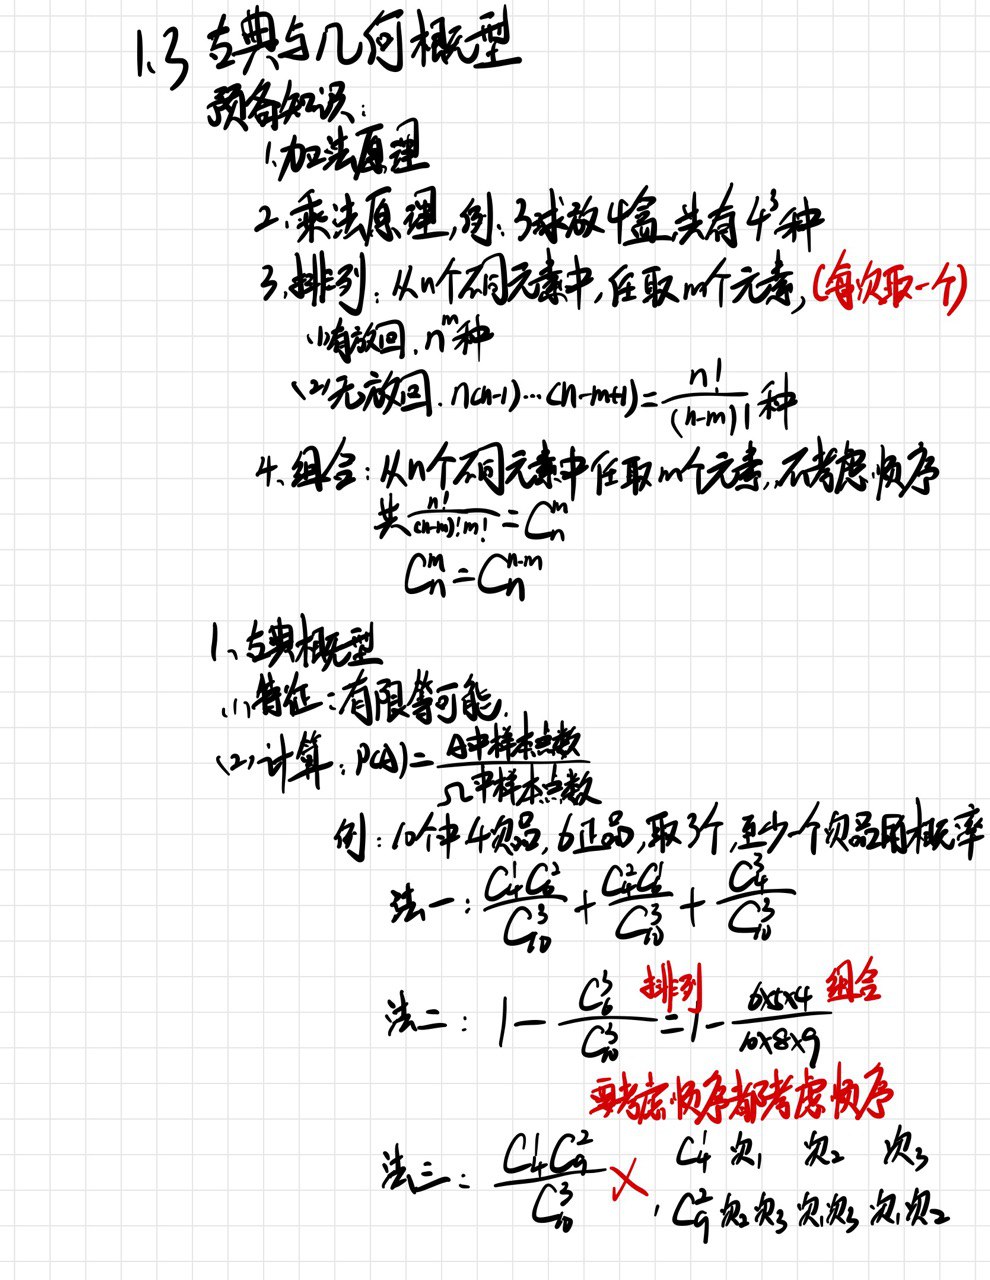 1.3 古典与几何概型
预备知识:
1.加法原理
2.乘法原理,例:3球放4盒,共有4³种
3.排列:从n个不同元素中,任取m个元素,(每次取一个)
(1)有放回.nᵐ种
(2)无放回.n(n-1)…(n-m+1)=n!/(n-m)!种
4.组合:从n个不同元素中任取m个元素,不考虑顺序
共n!/(n-m)!m!=Cₙᵐ
Cₙᵐ=Cₙⁿ⁻ᵐ
1、古典概型
(1)特征:有限等可能.
(2)计算:P(A)=A中样本点数/Ω中样本点数
例:10个中4次品,6正品,取3个,至少一个次品的概率
法一:C₄¹C₆²/C₁₀³+C₄²C₆¹/C₁₀³+C₄³/C₁₀³
法二:1-C₆³/C₁₀³ 排列 =1-6×5×4/10×8×9 组合
要考虑顺序都考虑顺序
法三:C₄¹C₉²/C₁₀³ × C₄¹ 次₁ 次₂ 次₃
C₉² 次₂次₃ 次₁次₃ 次₁次₂